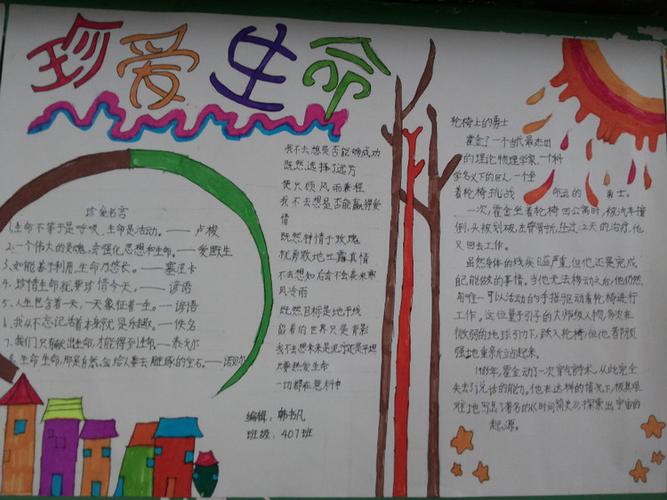 珍爱生命
珍爱名言
1.生命不等于是呼吸,生命是活动。——卢梭
2.一个伟大的灵魂,会强化思想和生命。——爱默生
3.如能善于利用,生命乃悠长。——塞涅卡
4.珍惜生命就要珍惜今天。——谚语
5.人生包含着一天,一天象征着一生。——谚语
6.我从不忘记活着本身就是乐趣。——佚名
7.我们只有献出生命,才能得到生命——泰戈尔
8.生命,那是自然会给人类去雕琢的宝石。——诺贝尔
我不去想是否能够成功
既然选择了远方
便只顾风雨兼程
我不去想是否能赢得爱
情
既然钟情于玫瑰
就勇敢地吐露真情
不去想身后会不会袭来寒
风冷雨
既然目标是地平线
留着的世界只是背影
我不去想未来是平坦还是泥泞
只要热爱生命
一切都在意料中
编辑:韩书凡
班级:407班
轮椅上的勇士
霍金了一个当代最杰出
的理论物理学家,一个科
学名义下的巨人,一个坐
着轮椅挑战命运的勇士。
一次,霍金坐着轮椅回公寓时,被汽车撞
倒,头被划破,左臂骨折,但过2天的治疗,他
又回去工作。
虽然身体的残疾日益严重,但他还是完成
自己能做的事情。当他无法移动之后,他仍然
用唯一可以活动的手指驱动着轮椅进行
工作。这位量子引力的大师级人物,多次在
微弱的地球引力下,跌入轮椅,但他都顽
强地重新站起来。
1985年,霍金动了一次穿气管手术,从此完全
失去了说话的能力。他在这样的情况下,极其艰
难地写出了著名的《时间简史》,探索出宇宙的
起源。